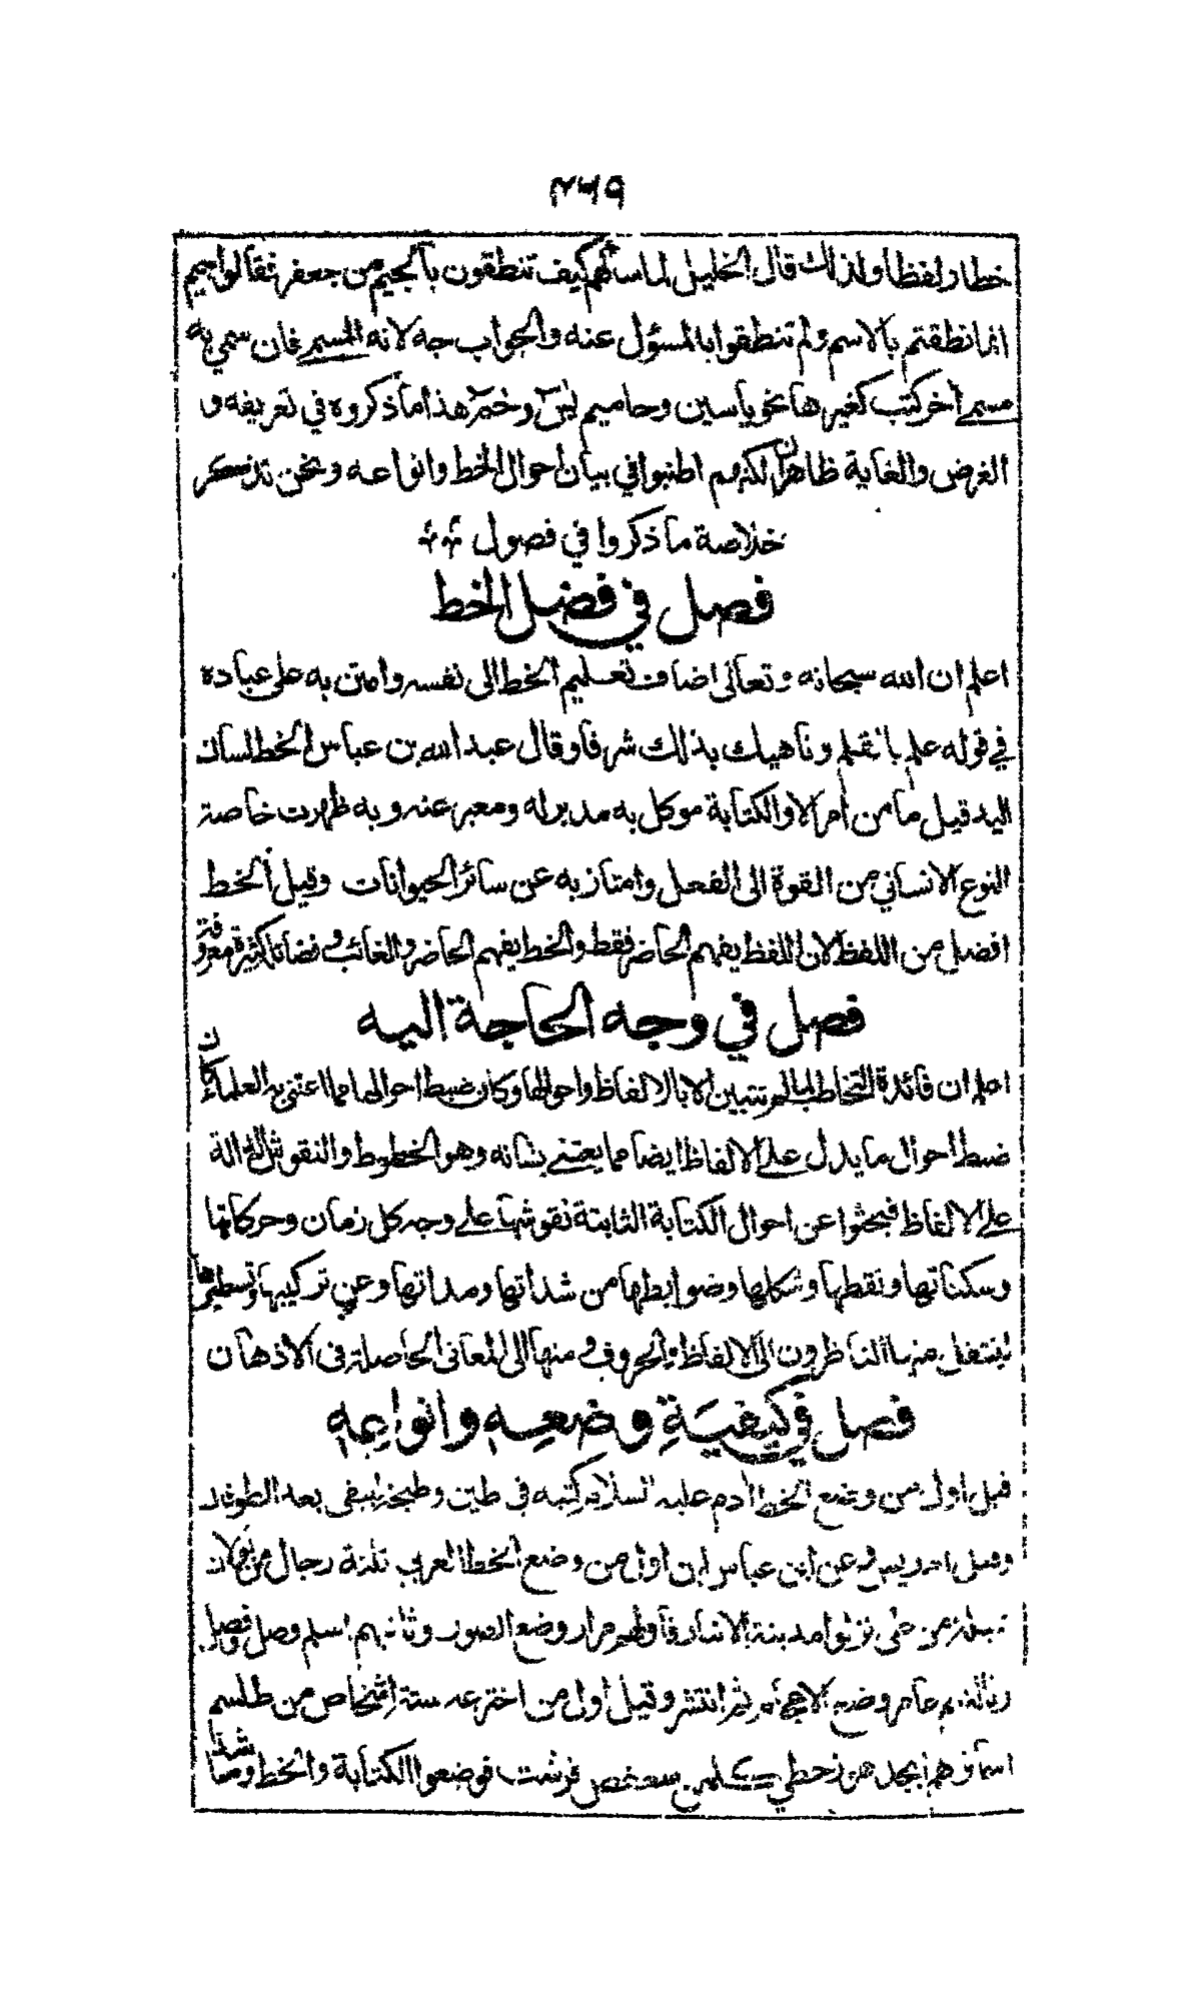 ٢٦٩
خطا ولفظا ولذلك قال الخليل لما سألهم كيف تنطقون بالجيم من جعفر فقالوا جيم
انما نطقتم بالاسم ولم تنطقوا بالمسؤل عنه والجواب جه لانه المسمى فان سمي به
مسمى آخر كتب كغيرها نحو ياسين وحاميم يس وحم هذا ما ذكروه في تعريفه و
الغرض والغاية ظاهران لكنهم اطنبوا في بيان احوال الخط وانواعه ونحن نذكر
خلاصة ما ذكروا في فصول
فصل في فضل الخط
اعلم ان الله سبحانه وتعالى اضاف تعليم الخط الى نفسه وامتن به على عباده
في قوله علم بالقلم وناهيك بذلك شرفا وقال عبد الله بن عباس الخط لسان
اليد قيل ما من أمر الا والكتابة موكل به مدبر له ومعبر عنه وبه ظهرت خاصة
النوع الانساني من القوة الى الفعل وامتاز به عن سائر الحيوانات وقيل الخط
افضل من اللفظ لان اللفظ يفهم الحاضر فقط والخط يفهم الحاضر والغائب وفضائله كثيرة معروفة
فصل في وجه الحاجة اليه
اعلم ان فائدة التخاطب لما لم تتبين الا بالالفاظ واحوالها وكان ضبط احوالها مما اعتنى به العلماء كان
ضبط احوال ما يدل على الالفاظ ايضا مما يعتنى بشانه وهو الخطوط والنقوش الدالة
على الالفاظ فبحثوا عن احوال الكتابة الثابتة نقوشها على وجه كل زمان وحركاتها
وسكناتها ونقطها وشكلها وضوابطها من شداتها ومداتها وعن تركيبها وتسطيرها
لينتقل منها الناظرون الى الالفاظ والحروف ومنها الى المعانى الحاصلة فى الاذهان
فصل في كيفية وضعه وانواعه
قيل اول من وضع الخط آدم عليه السلام كتبه في طين وطبخه ليبقى بعد الطوفان
وقيل ادريس وعن ابن عباس ان اول من وضع الخط العربي ثلثة رجال من بولان
قبيلة من طى نزلوا مدينة الانبار فأولهم مرار وضع الصور وثانيهم اسلم وصل وفصل
وثالثهم عامر وضع الاعجام ثم انتشر وقيل اول من اخترعه ستة اشخاص من طلسم
اسماؤهم ابجد هوز حطي كلمن سعفص قرشت فوضعوا الكتابة والخط وما شذ